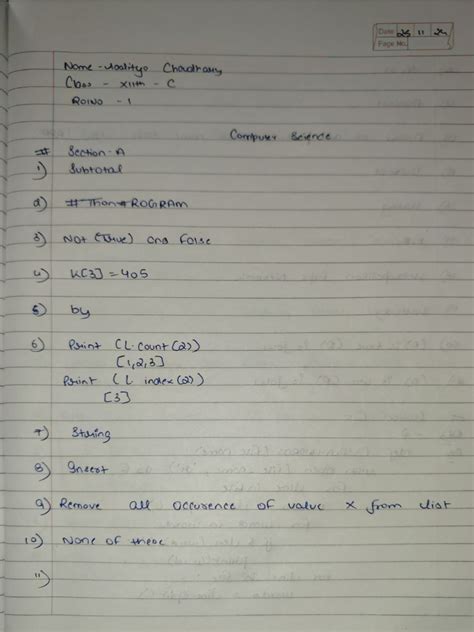 Date 23 11 24
Page No.
Name - Aaditya Choudhary
Class - XIIth - C
Rolno - 1
Computer Science
# Section-A
1) Subtotal
2) # Thon # ROGRAM
3) Not (True) and False
4) K[3] = 405
5) by
6) Print (L.count(2))
[1,2,3]
Print (L index(2))
[3]
7) String
8) Insert
9) Remove all occurence of value x from list
10) None of these
11)